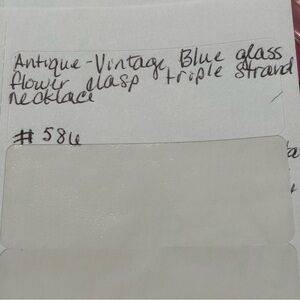 Antique-Vintage Blue glass
flower clasp triple strand
necklace
# 586